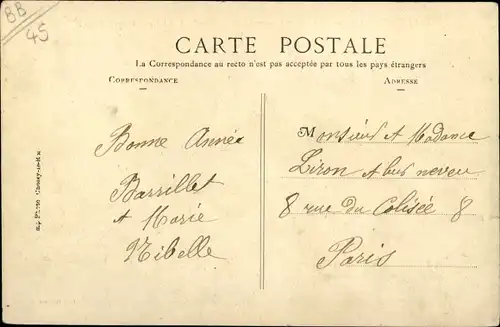 BB
45
CARTE POSTALE
La Correspondance au recto n'est pas acceptée par tous les pays étrangers
CORRESPONDANCE
ADRESSE
Bonne Année
Barillet
et Marie
Nibelle
Monsieur et Madame
Liron et leur neveu
8 rue du Colisée 8
Paris